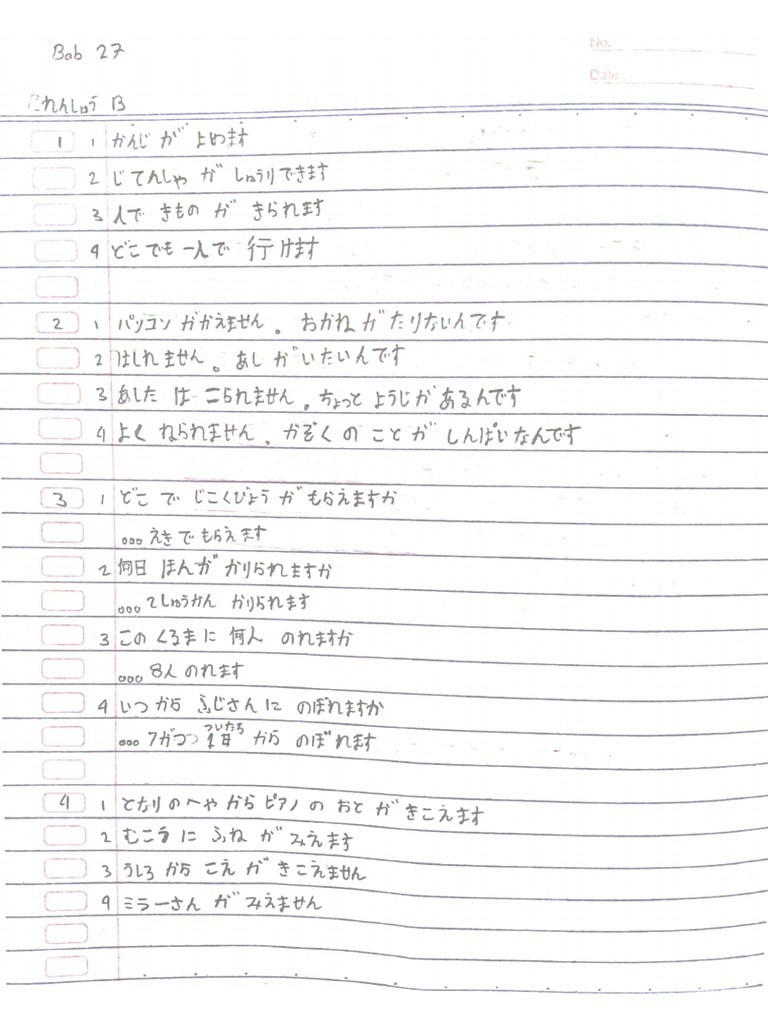 Bab 27
No.
Date
れんしゅう B
1 1 かんじ が よめます
2 じてんしゃ が しゅうりできます
3 人で きもの が きられます
4 どこでも 一人で 行けます
2 1 パソコン がかえません 。 おかね が たりないんです
2 はしれません 。 あし がいたいんです
3 あした は こられません 。ちょっと ようじが あるんです
4 よく ねられません 。 かぞく の こと が しんぱいなんです
3 1 どこ で じこくびょう が もらえますか
... えき で もらえます
2 何日 ほんが かりられますか
... 2しゅうかん かりられます
3 この くるま に 何人 のれますか
... 8人 のれます
4 いつ から ふじさん に のぼれますか
... 7がつ ついたち 1日 から のぼれます
4 1 となり の へや から ピアノ の おと が きこえます
2 むこう に ふね が みえます
3 うしろ から こえ が きこえません
4 ミラーさん が みえません